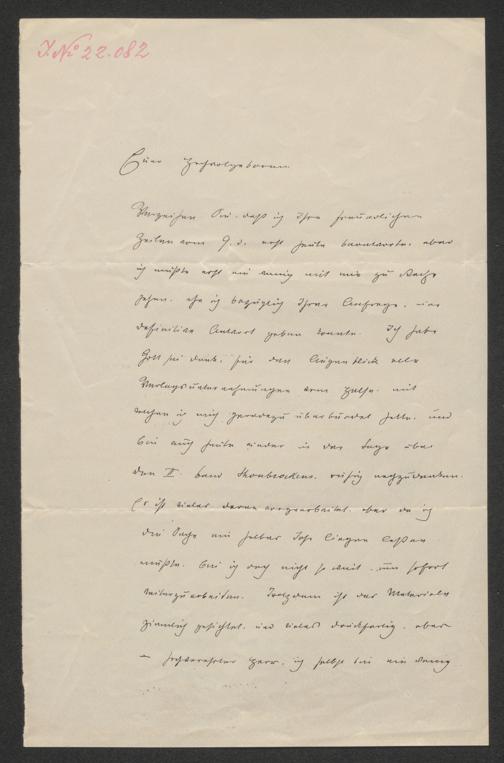 J. No 22.082
Euer Hochwolgeboren
Verzeihen Sie, daß ich Ihre freundlichen
Zeilen vom 9. d. erst heute beantworte, aber
ich mußte erst ein wenig mit mir zu Rathe
gehen, ehe ich bezüglich Ihrer Anfrage, eine
definitive Antwort geben konnte. Ich habe
Gott sei Dank, für den Augenblick alle
Verlagsunternehmungen vom Halse, mit
welchen ich mich geradezu überbürdet hatte, und
bin auch heute wieder in der Lage über
den II. Band ruhig nachzudenken.
Es ist vieles daran vorgearbeitet, aber da ich
die Sache ein halbes Jahr liegen lassen
mußte, bin ich doch nicht so weit, um sofort
weiterzuarbeiten. Trotzdem ist das Materiale
ziemlich gesichtet, und vieles druckfertig, aber
– hochverehrter Herr, ich selbst bin ein wenig